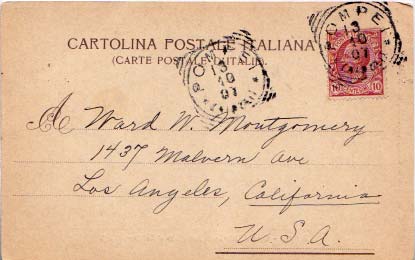 CARTOLINA POSTALE ITALIANA
(CARTE POSTALE D'ITALIE)
POMPEI
13
10
01
POMPEI
13
10
01
10
Ward W. Montgomery
1437 Malvern Ave
Los Angeles, California
U.S.A.